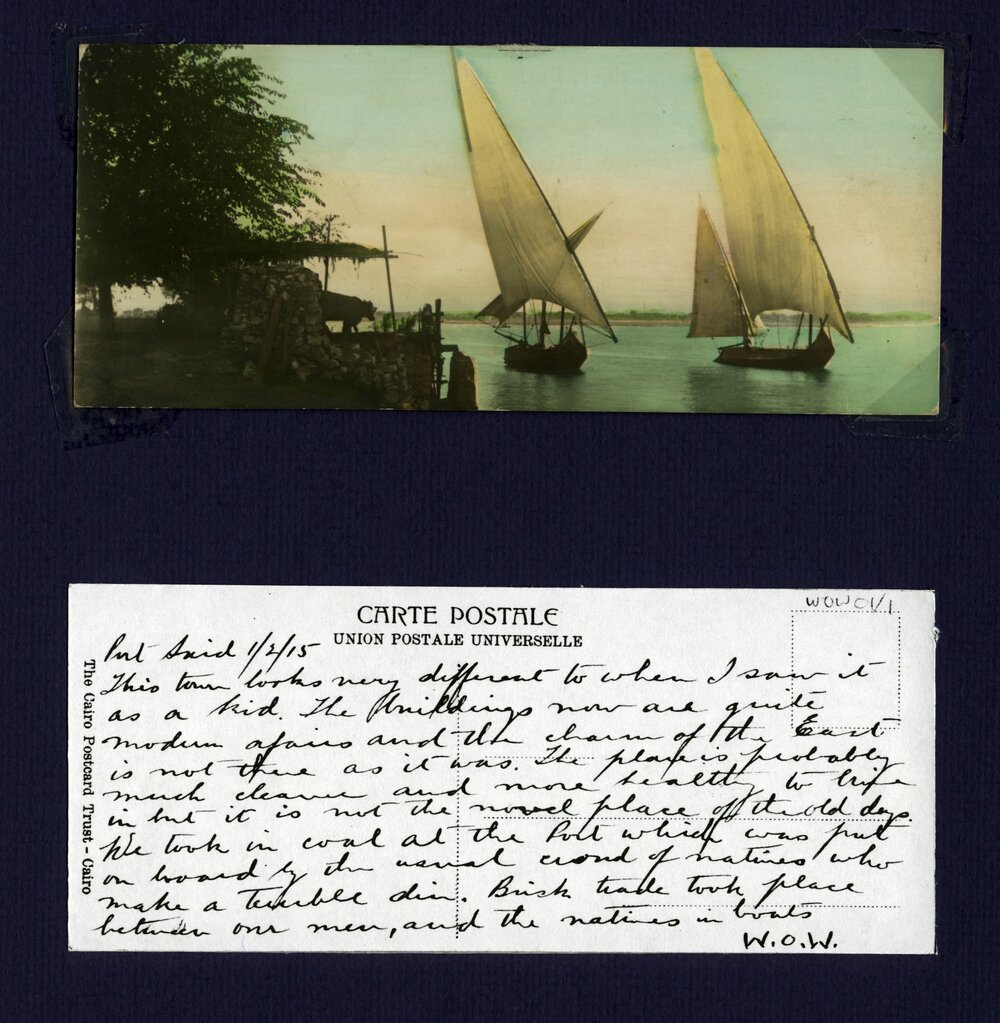 WOW01/1
CARTE POSTALE
UNION POSTALE UNIVERSELLE
The Cairo Postcard Trust - Cairo
Port Said 1/2/15
This town looks very different to when I saw it
as a kid. The buildings now are quite
modern afairs and the charm of the East
is not there as it was. The place is probably
much cleaner and more healthy to live
in but it is not the novel place of the old days.
We took in coal at the Port which was put
on board by the usual crowd of natives who
make a terrible din. Brisk trade took place
between our men, and the natives in boats
W.O.W.